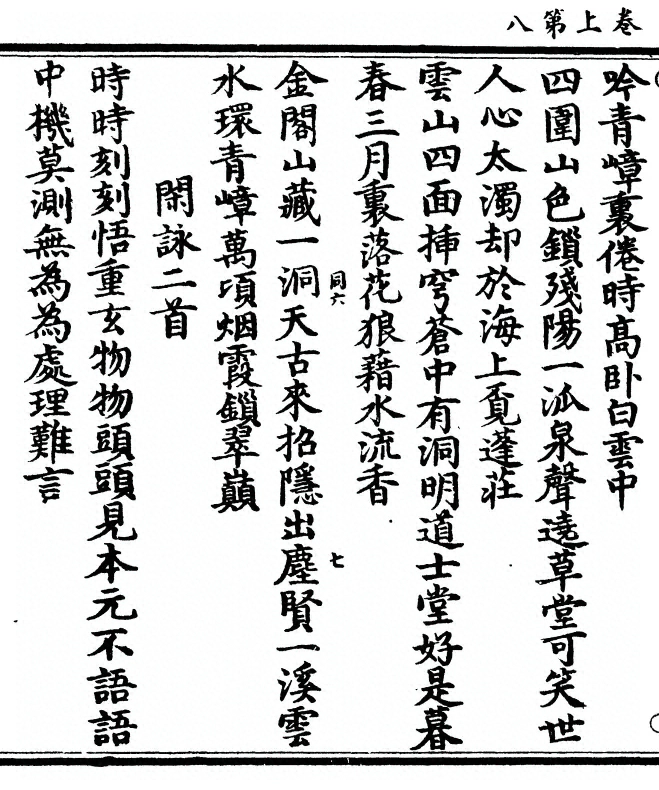 卷上第八
吟青嶂裏倦時高卧白雲中
四圍山色鎖殘陽一泒泉聲遶草堂可笑世
人心太濁却於海上覔蓬莊
雲山四面揷穹蒼中有洞明道士堂好是暮
春三月裏落花狼藉水流香
金閣山藏一洞天古來招隱出塵賢一溪雲
同六
七
水環青嶂萬頃烟霞鎖翠巔
閑詠二首
時時刻刻悟重玄物物頭頭見本元不語語
中機莫測無為為處理難言